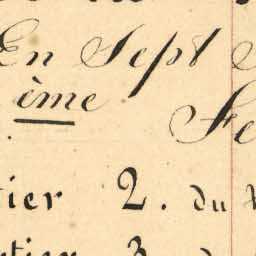 En Sept
ème
Fe
tier 2. du
tier 3.